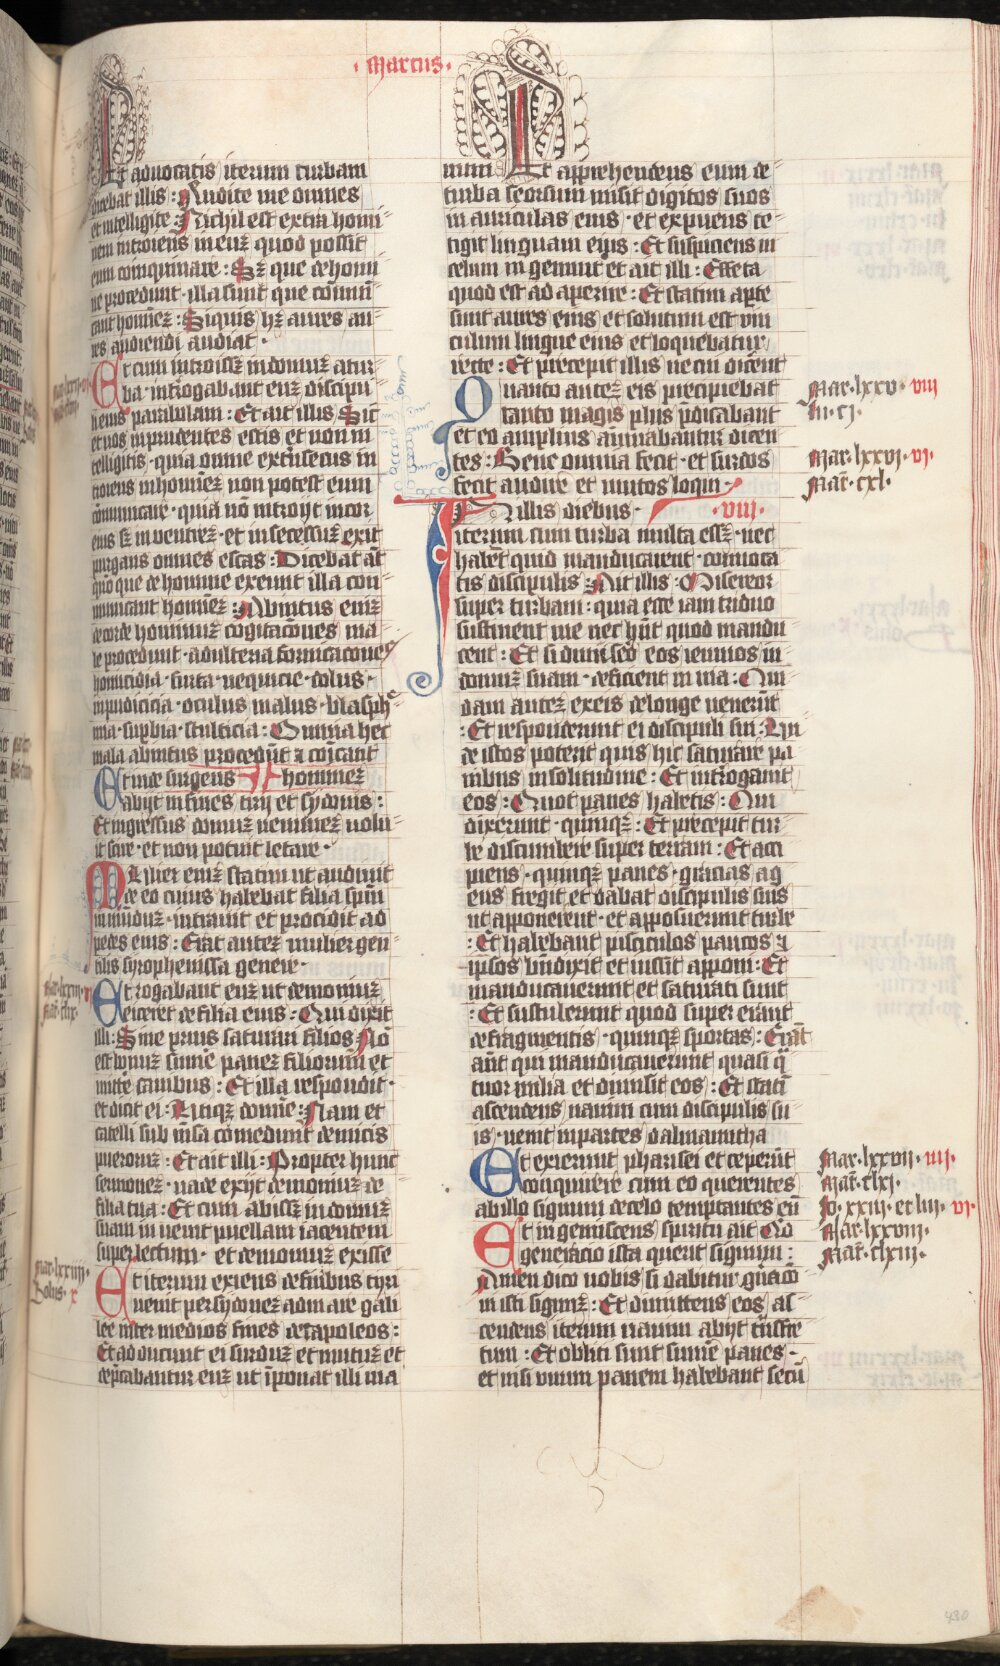 · Marcus ·
Et aduocatis iterum turbam
dicebat illis : Audite me omnes
et intelligite : Nichil est extra homi
nem introiens in eum quod possit
eum coinquinare : Sz que de homi
ne procedunt · illa sunt que cōmuni
cant hominez : Siquis hz aures au
res audiendi audiat ·
Et cum introissz in domuz a tur
ba · introgabant euz discipu
li eius parabulam : Et ait illis · Sic
et uos inprudentes estis et non in
telligitis · quia omne extrisecus in
troiens in hominez non potest eum
cōmunicare · quia nō introyt in cor
eius sz in ventrez · et in secessuz exit
purgans omnes escas : Dicebat aūt
quō que de homine exeunt illa con
municant hominez : Ab intus eniz
de corde hominuz cogitacōnes ma
le procedunt · adulteria fornicacones
homicidia · furta · nequicie · dolus ·
inpudicicia · oculus malus · blasph
mia · supbia · stulticia : Omnia hec
mala abintus procedūt z coīcant
Et inde surgens hominez
abijt in fines tirij et sydonis :
Et ingressus domuz neminez uolu
it scire · et non potuit letare ·
Mulier eniz statim ut audiuit
de eo cuius habebat filia spūm
inmūduz · intrauit et procidit ad
pedes eius : Erat autez mulier gen
tilis syrophenissa genere ·
Et rogabant euz ut demoniuz
eiceret de filia eius : Qui dixit
illi : Sine prius saturari filios Nō
est bonuz sumē panez filiorum et
mitte canibus : Et illa respondit ·
et dicit ei : Utiqz domīe : Nam et
catelli sub mēsa comedunt de micis
pueroruz : Et ait illi : Propter hunc
sermonez · uade exijt demoniuz de
filia tua : Et cum abissz in domuz
suam in uenit puellam iacentem
super lectum · et demoniuz exisse
Et iterum exiens de finibus tyri
uenit per sydonez ad mare gali
lee inter medios fines decapoleos :
Et adducunt ei surduz et mutuz et
depcabantur euz ut īponat illi ma
num Et apprehendens eum de
turba seorsum misit digitos suos
in auriculas eius · et expuens te
tigit linguam eius : Et suspiciens in
celum in gemuit et ait illi : Effeta
quod est ad aperire : Et statim apte
sunt aures eius et solutum est vin
culum lingue eius et loquebatur
recte : Et precepit illis ne cui dicent
Quanto autez eis precipiebat
tanto magis plus pdicabant
et eo amplius āmirabantur dicen
tes : Bene omnia fecit · et surdos
fecit audire et mutos loqui ·
In illis diebus · · viii ·
iterum cum turba multa essz · nec
habēt quid manducarent · conuoca
tis discipulis Ait illis · Misereor
super turbam : quia ecce iam triduo
sustinent me nec hūt quod mandu
cent : Et si dimisēo eos ieiunos in
domuz suam · deficient in uia : Qui
dam autez ex eis de longe venerūt
: Et responderunt ei discipuli sui : Un
de istos poterit quis hic saturare pa
nibus in solitudine : Et intrrogauit
eos : Quot panes habetis : Qui
dixerunt · quinqz : Et precepit tur
be discumbere super terram : Et acci
piens · quinqz panes · gracias ag
ens fregit et dabat discipulis suis
ut apponerent · et apposuerunt turbe
: Et habebant pisciculos paucos z
ipsos bndixit et iussit apponi : Et
manducauerunt et saturati sunt
: Et sustulerunt quod super erant
de fragmentis · quinqz sportas : Erāt
aūt qui manducauerunt quasi q̄
tuor milia et dimisit eos : Et statī
ascendens nauim cum discipulis su
is · uenit in partes dalmanutha
Et exierunt pharisei et ceperūt
conquirere cum eo querentes
ab illo signum de celo temptantes eū
Et in gemiscens spiritu ait Quo
generacio ista querit signum :
Amen dico uobis si dabitur gnacō
in isti signuz : Et dimittens eos as
cendens iterum nauim abijt tūsfre
tum : Et obliti sunt sumē panes ·
et nisi unum panem habebant secū
Mar · lxxv · viii
lu · cj ·
Mar · lxxvj · vj ·
Mat · cxl ·
Mar · lxxiii ·
Mat · clix ·
Mar · lxxiiij ·
Solus · x
Mar · lxxvii · iiii ·
Mat · clxj ·
Jo · xxiii · et liii · vi ·
Mar · lxxviii ·
Mat · clxiii ·
430